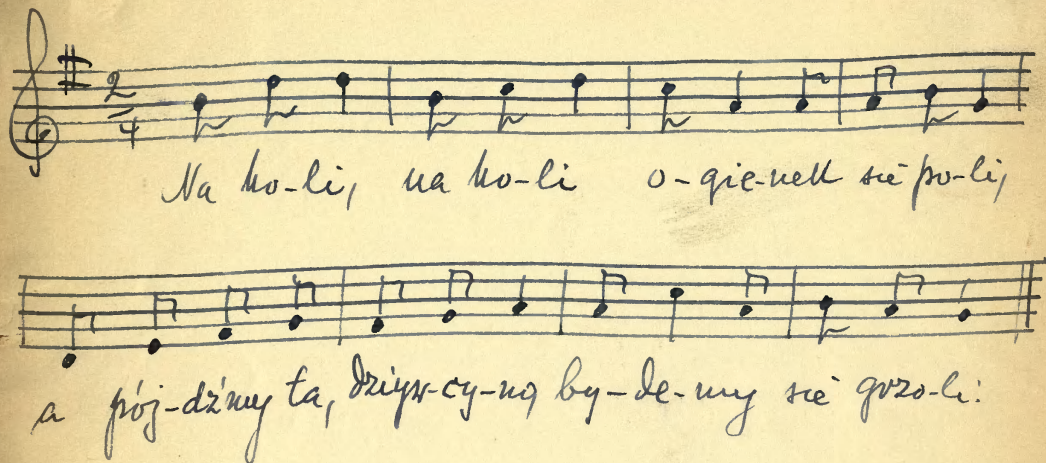 2
4
Na ho-li, na ho-li o-gie-nek się po-li,
a pój-dźmy ta, dziyw-cy-no, by-de-my się grzo-li: